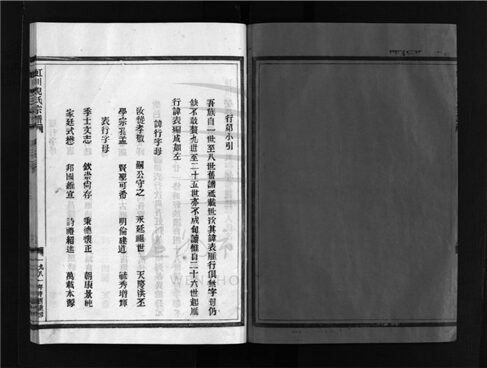 行第小引
吾族自一世至八世舊譜遞載世次其諱表雁行俱無字母仍
缺不敢贅九世至二十五世亦不成句讀惟自二十六世起雁
行諱表編成如左
諱行字母
孝敬 嗣公守之 永延繼世 天慶
學宗孔孟 賢聖可希 明倫建道 毓秀增輝
表行字母
季士文志 欽崇尚存 秉德懷正 朝康景純
家廷式懋 邦國維宣 詩禮紹述 萬載本源